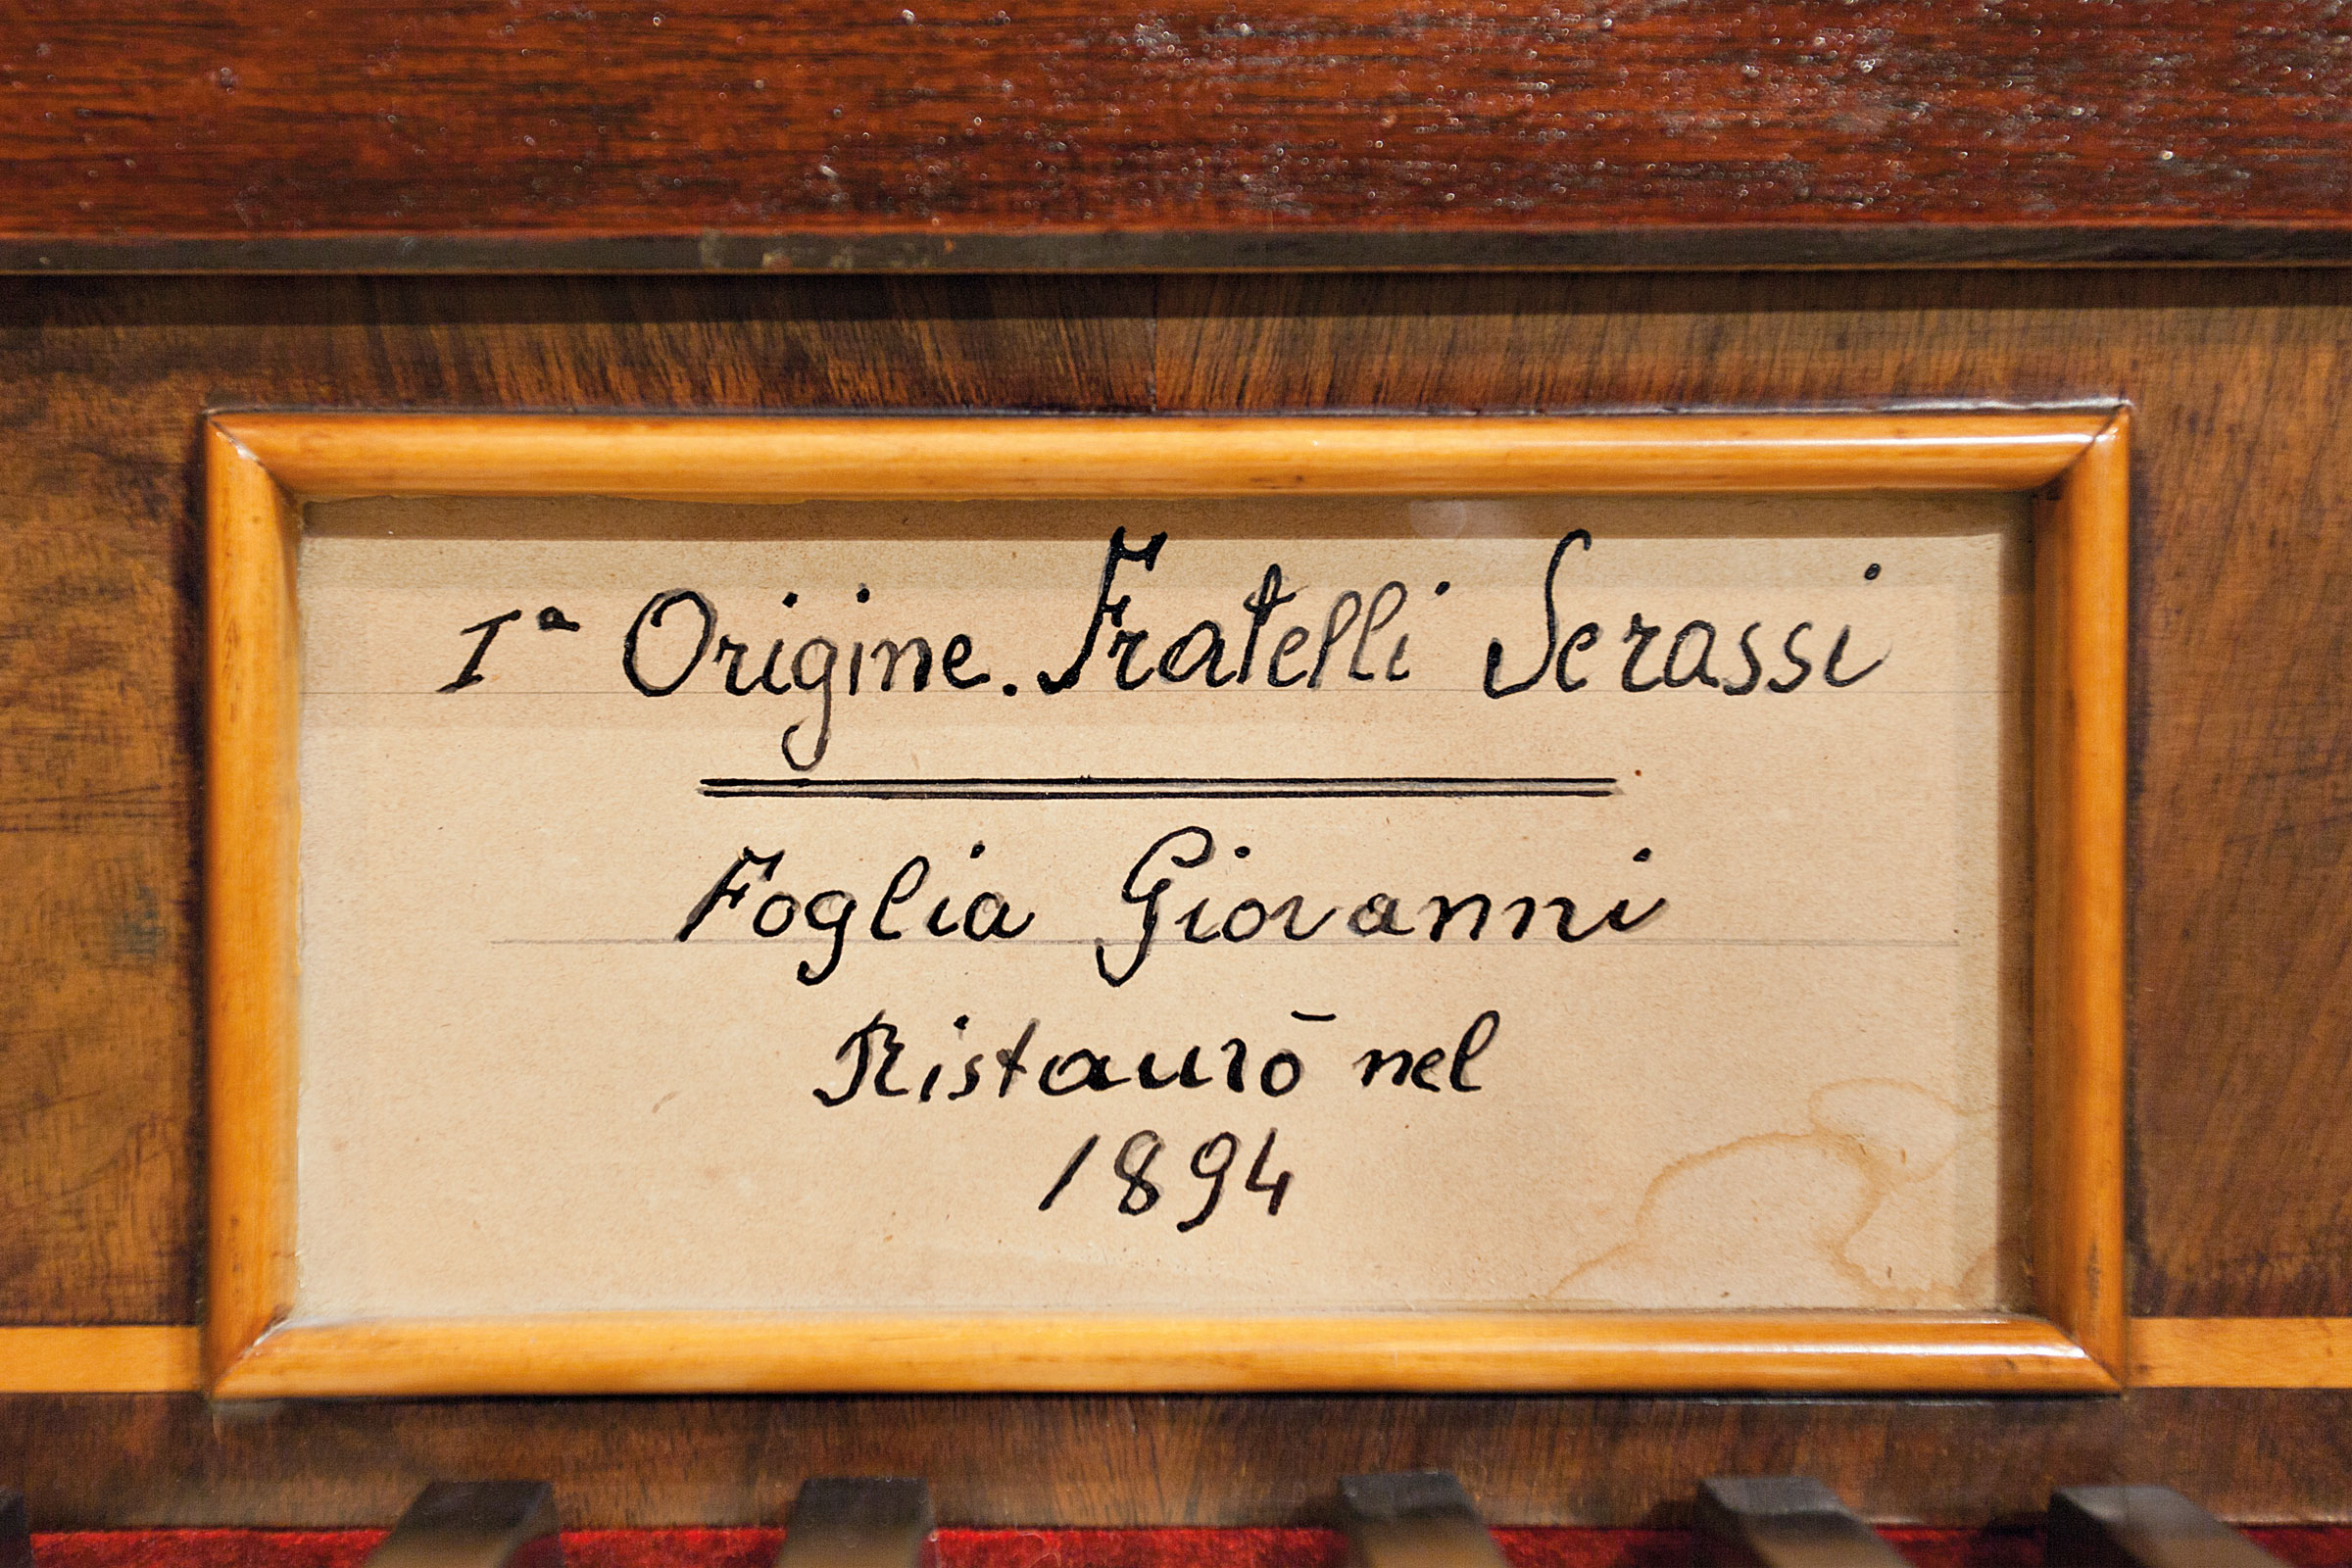 Iª Origine. Fratelli Serassi
Foglia Giovanni
Ristaurō nel
1894